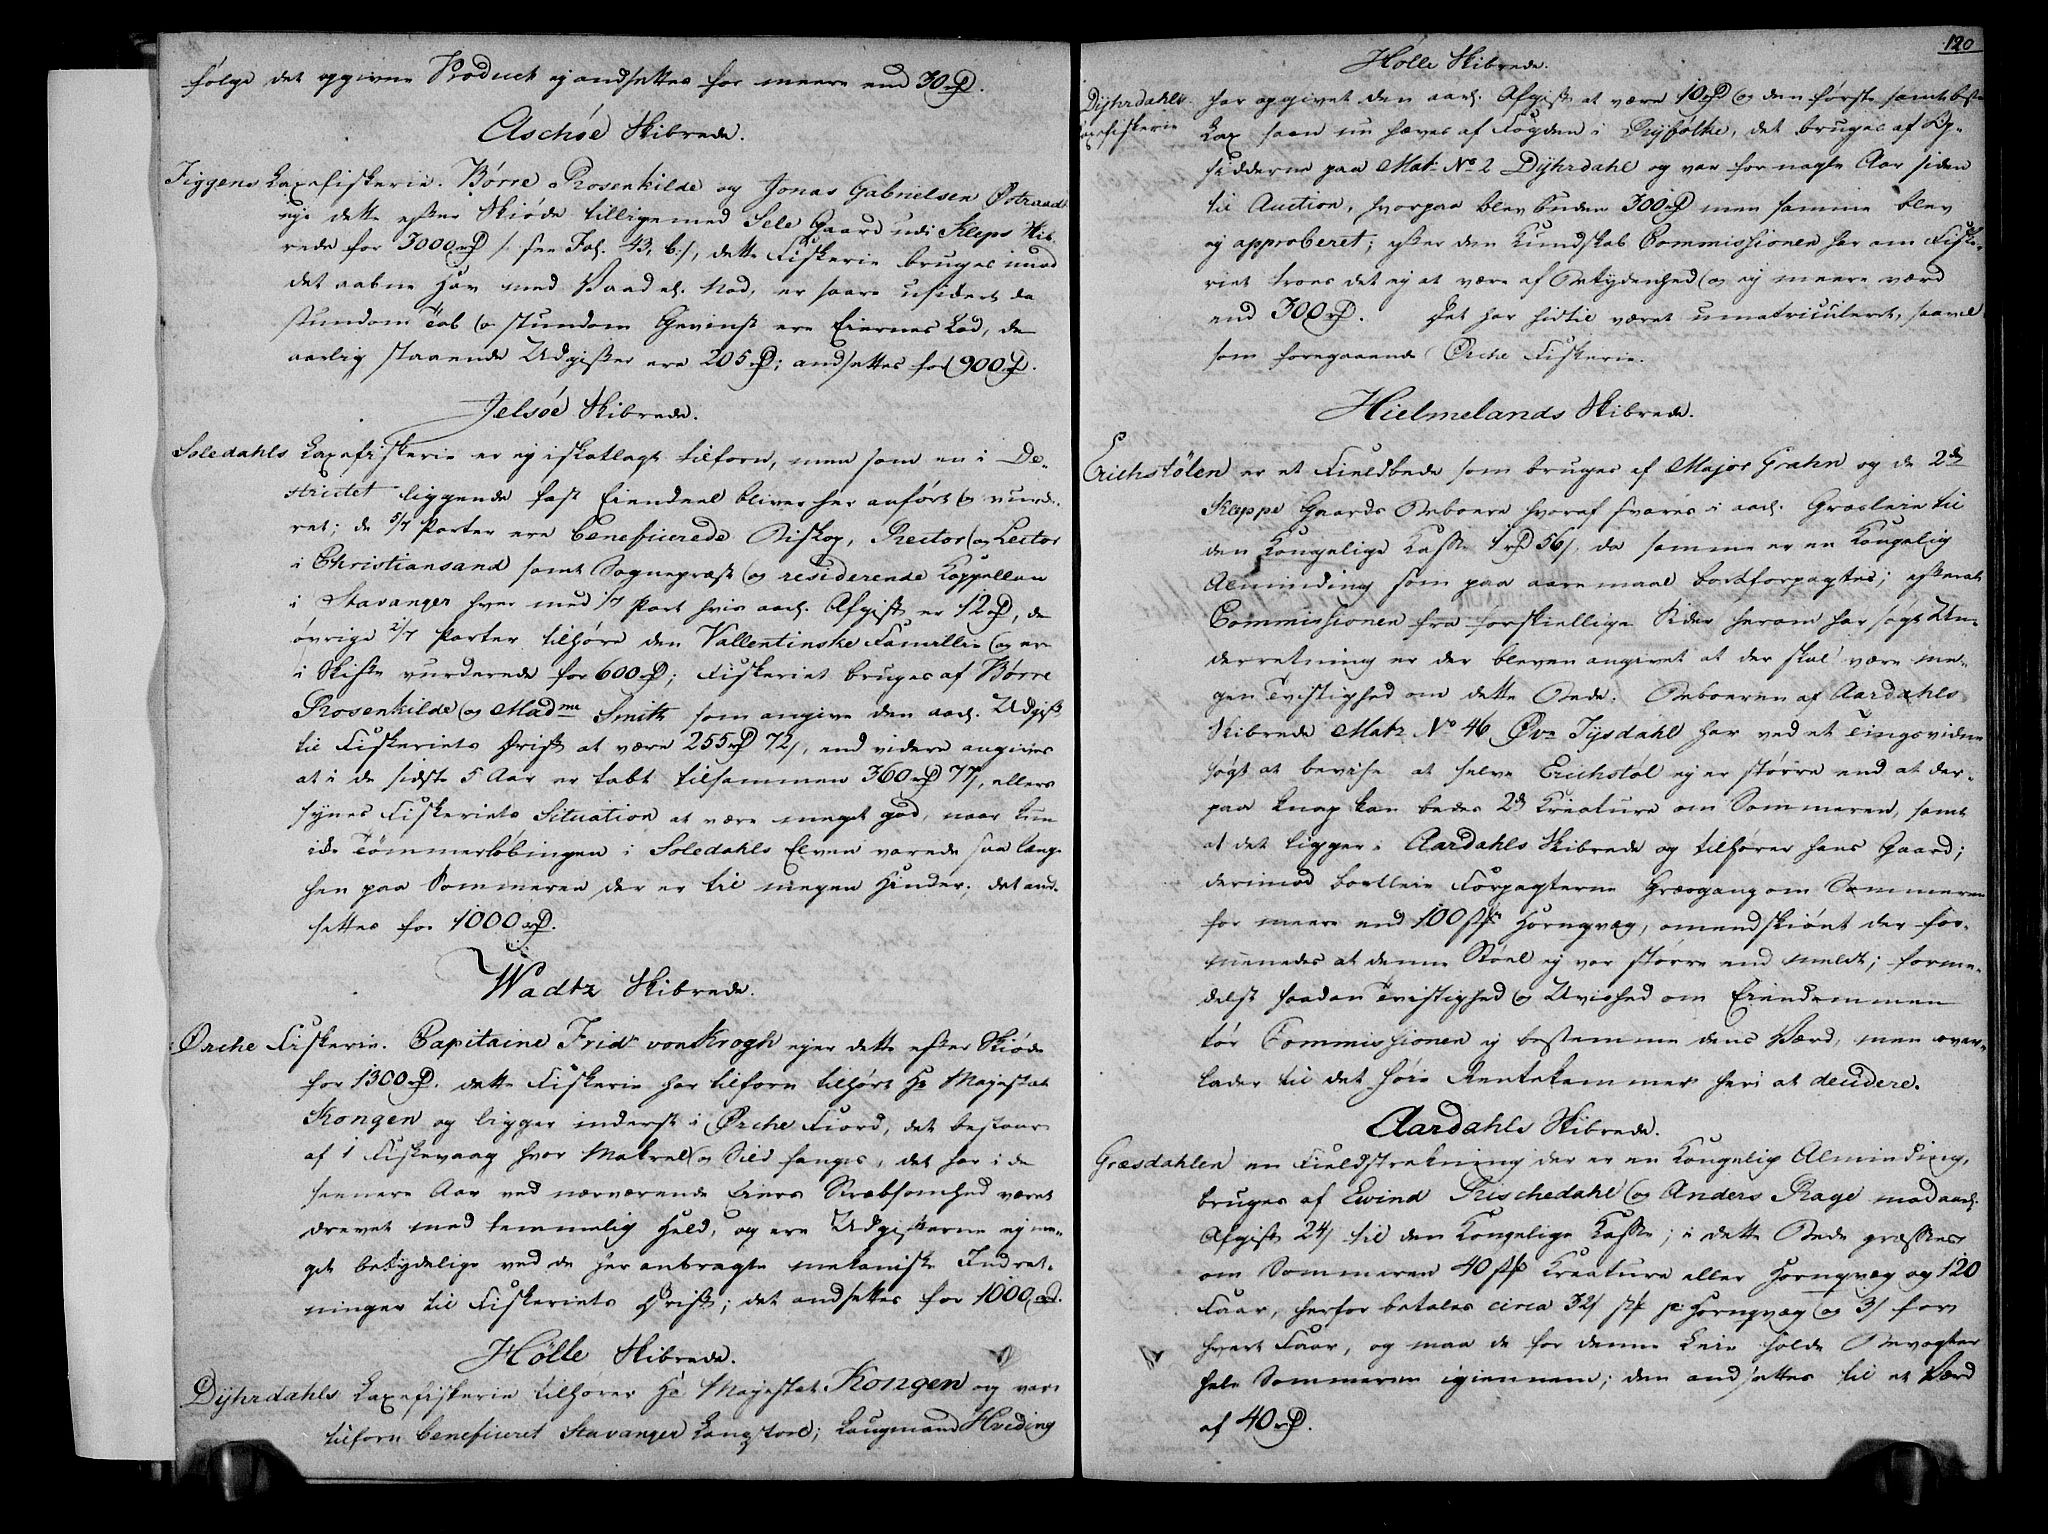 følge det opgivne Product ej andsettes for meere end 30 rD.
Aschøe Skibrede.
Figgens Laxefiskerie. Børre Rosenkilde og Jonas Gabrielsen Østraad
eje dette efter Skiøde tilligemed Sele Gaard udi Kleps Skib-
rede for 3000 rD /: see Fol. 43, b:/, dette Fiskerie bruges imod
det aabne Hav med Vaad el. Nod, er saare usikert da
stundom Tab og stundom Gevinst ere Eiernes Lod, de
aarlig staaende Udgifter ere 205 rD; andsettes for 900 rD.
Jelsøe Skibrede.
Soledahls Laxefiskerie er ej iskatlagt tilforn, men som en i De-
strictet liggende fast Eiendeel bliver her anført og vurde-
ret; de 5/7 Parter ere beneficerede Biskop, Rector og Lector
i Christiansand samt Sognepræst og residerende Cappellan
i Stavanger hver med 1/7 Part hvis aarl. Afgift er 12 rD, de
øvrige 2/7 Parter tilhøre den Vallentinske Familie og ere
i Skifte vurderede for 600 rD; Fiskeriet bruges af Børre
Rosenkilde og Madme Smith som angive den aarl. Udgift
til Fiskeriets Drift at være 255 rD 72 s, end videre angives
at i de sidste 5 Aar er tabt tilsammen 360 rD 77 s, ellers
synes Fiskeriets Situation at være meget god, naar kun
ikke Tømmerløbingen i Soledahls Elven varede saa læn-
hen paa Sommeren der er til megen Hinder, det and-
settes for 1000 rD.
Wadtz Skibrede.
Ørche Fiskerie. Capitaine Fridr von Krogh ejer dette efter Skiøde
for 1300 rD. dette Fiskerie har tilforn tilhørt Hs Majestæt
Kongen og ligger inderst i Ørche Fiord, det bestaar
af 1 Fiskevaag hvor Makrel og Sild fanges, det har i de
seenere Aar ved nærværende Eiers Stræbsomhed været
drevet med temmelig Held, og ere Udgifterne ej me-
get betydelige ved de her anbragte mekaniske Indret-
ninger til Fiskeriets Drift; det andsettes for 1000 rD.
Hølle Skibrede.
Dÿhrdahls Laxefiskerie tilhører Hs Majestæt Kongen og var
tilforn beneficeret Stavanger Laugstoel; Laugmand Hvidíng
120
Hølle Skibrede.
Dÿhrdahls har opgivet den aarl. Afgift at være 10 rD og den første samt beste
Laxefiskerie Lax som nu hæves af Fogden i Ryfolke, det bruges af Op-
sidderne paa Mat: No 2 Dÿhrdahl og var for nogle Aar siden
til Auction, hvorpaa blev buden 300 rD men samme blev
ej approberet; efter den Kundskab Commissionen har om Fiske-
riet troes det ej at være af Betydenhed og ej meere værd
end 300 rD. Det har hidtil været umatriculeret, saavel
som foregaaende Ørche Fiskerie.
Hielmelands Skibrede.
Erichstølen er et Fieldbede som bruges af Major Grahn og de 2de
Kleppe Gaards Beboere hvoraf svares i aarl. Græsleie til
den Kongelige Kasse 1 rD 56 s, da samme er en Kongelig
Alminding som paa aaremaal bortforpagtes; efterat
Commissionen fra forskiellige Sider herom har søgt Un-
derretning er der bleven angivet at der skal være me-
gen Tvistighed om dette Bede. Beboeren af Aardahls
Skibrede Matr No 46 Øvre Tÿsdahl har ved et Tingsvidne
søgt at bevise at selve Erichstøl ej er større end at der-
paa knap kan bedes 2de Kreature om Sommeren, samt
at det ligger i Aardahls Skibrede og tilhører hans Gaard;
derimod bortleie Forpagterne Græsgang om Sommeren
for meere end 100 stk Hornqvæg, omendskiønt der for-
menedes at denne Støel ej var større end meldt; forme-
delst saadan Tvistighed og Uvished om Eiendommen
tør Commissionen ej bestemme dens Værd, men over-
lader til det høie Rentekammer heri at decidere.
Aardahls Skibrede.
Græsdahlen en Fieldstrekning der er en Kongelig Alminding,
bruges af Ewind Rischedahl og Anders Rage mod aarl.
Afgift 24 s til den Kongelige Kasse; i dette Bede græsses
om Sommeren 40 stk Kreature eller Hornqvæg og 120
Faar, herfor betales circa 32 s pr Hornqvæg og 3 s for
hvert Faar, og maa de for denne Leie holde Bevogter
hele Sommeren igiennem; den andsettes til et Værd
af 40 rD.